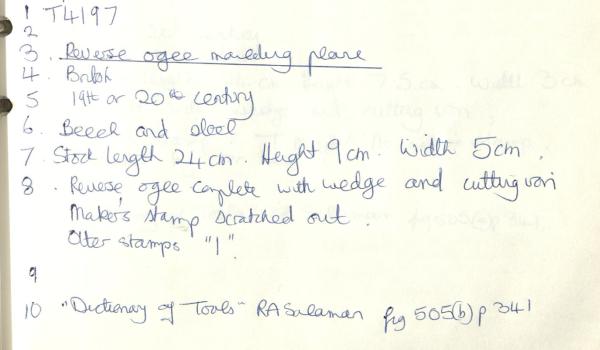 1 T4197
2
3. Reverse ogee moulding plane
4. British
5 19th or 20th century
6. Beech and steel
7. Stock length 24cm. Height 9cm. Width 5cm.
8. Reverse ogee complete with wedge and cutting iron
Maker's stamp scratched out.
Other stamps "1".
9
10 "Dictionary of Tools" RA Salaman fig 505(b) p 341